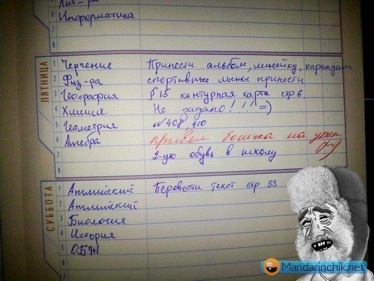 Информатика
ПЯТНИЦА
Черчение Принести альбом, линейку, карандаш
Физ-ра спортивные лыжи принести
География § 15 контурная карта стр 6
Химия Не задано!!! =)
Геометрия №408
Алгебра привел на урок
2-ую обувь в школу
СУББОТА
Английский Перевести текст стр. 33
Английский
Биология
История
ОБЖ
Mandarinchik.net